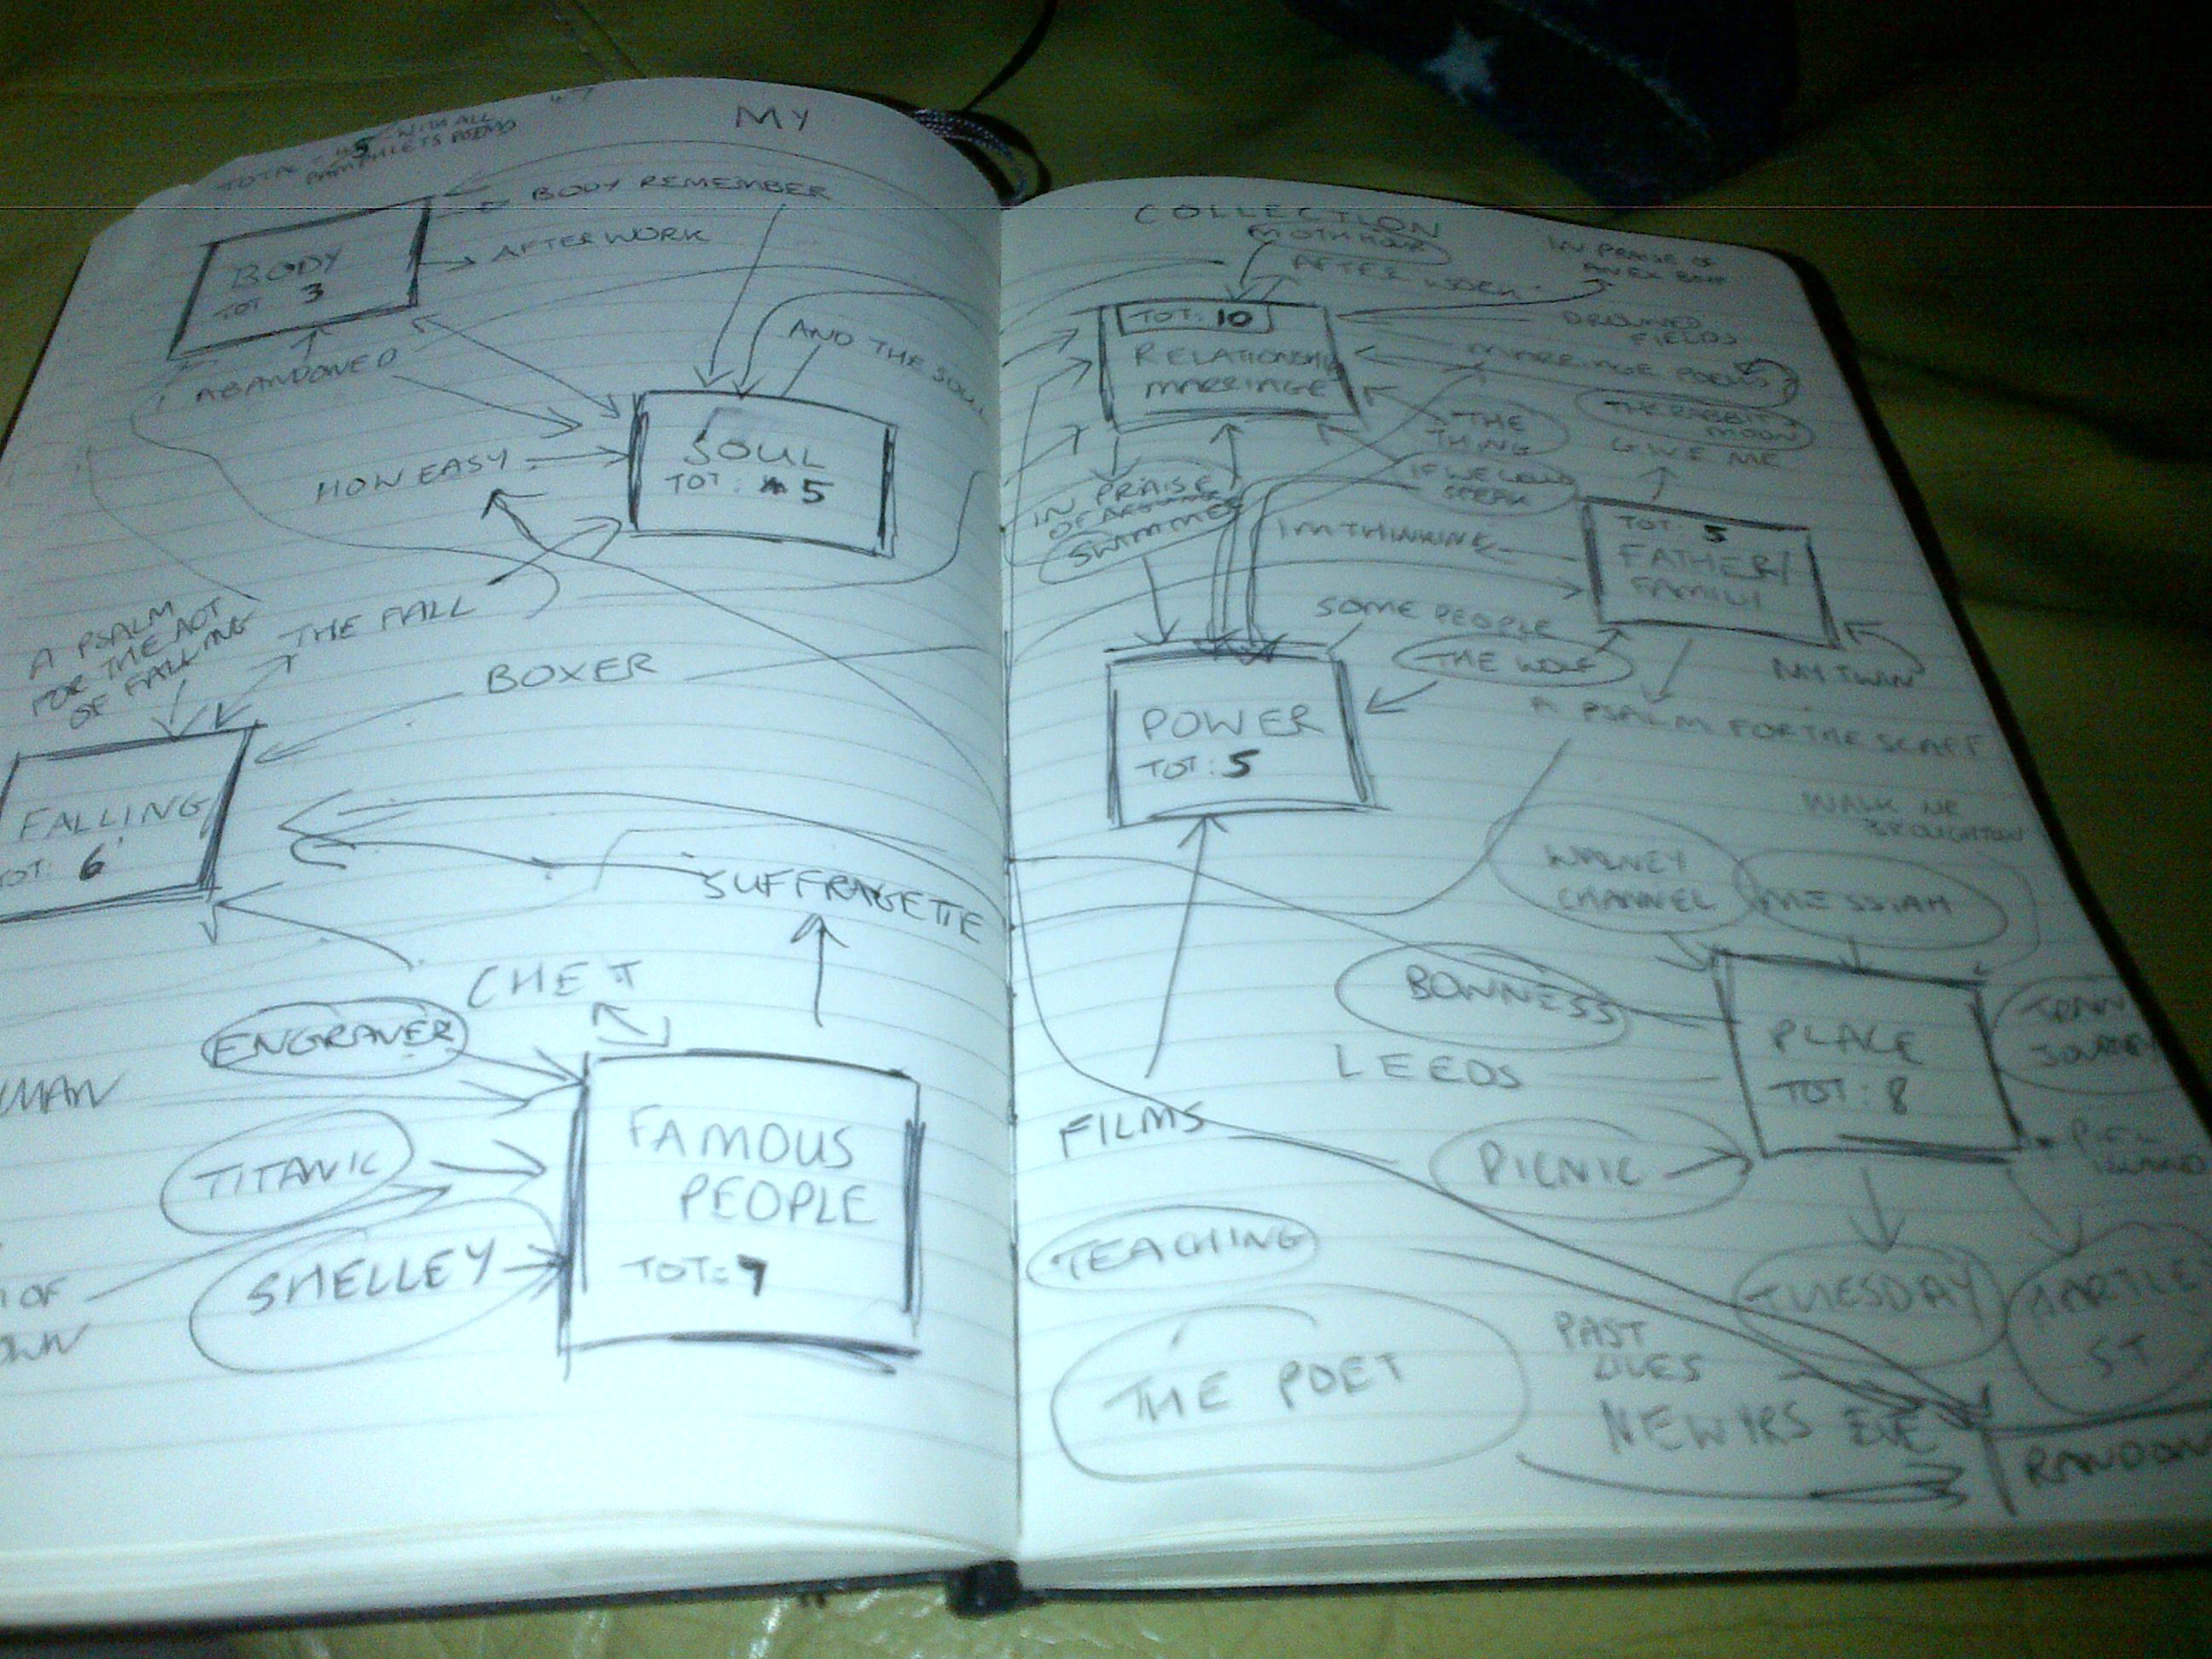 MY
TOTAL
WITH ALL
PAMPHLETS POEMS
BODY REMEMBER
AFTER WORK
BODY
TOT 3
ABANDONED
AND THE SOUL
SOUL
TOT: 5
HOW EASY
THE FALL
A PSALM
FOR THE ACT
OF FALLING
BOXER
FALLING
TOT: 6
SUFFRAGETTE
CHET
ENGRAVER
MAN
TITANIC
SHELLEY
OF
OWN
FAMOUS
PEOPLE
TOT: 7
COLLECTION
MOTH HOUR
AFTER WORK
IN PRAISE OF
AN EX
TOT: 10
RELATIONSHIP
MARRIAGE
DROWNED
FIELDS
MARRIAGE POEMS
THE RABBIT
MOON
THE
THING
GIVE ME
IF WE COULD
SPEAK
IN PRAISE
OF
SWIMMER
IM THINKING
TOT: 5
FATHER/
FAMILY
SOME PEOPLE
THE WOLF
MY TWIN
A PSALM FOR THE SCAFF
POWER
TOT: 5
WALK NR
BROUGHTON
WALNEY
CHANNEL
MESSIAH
BOWNESS
LEEDS
PLACE
TOT: 8
TRAIN
JOURNEY
FILMS
PICNIC
PIEL
ISLAND
TEACHING
TUESDAY
HARTLE
ST
THE POET
PAST
LIVES
NEW YRS EVE
RANDOM